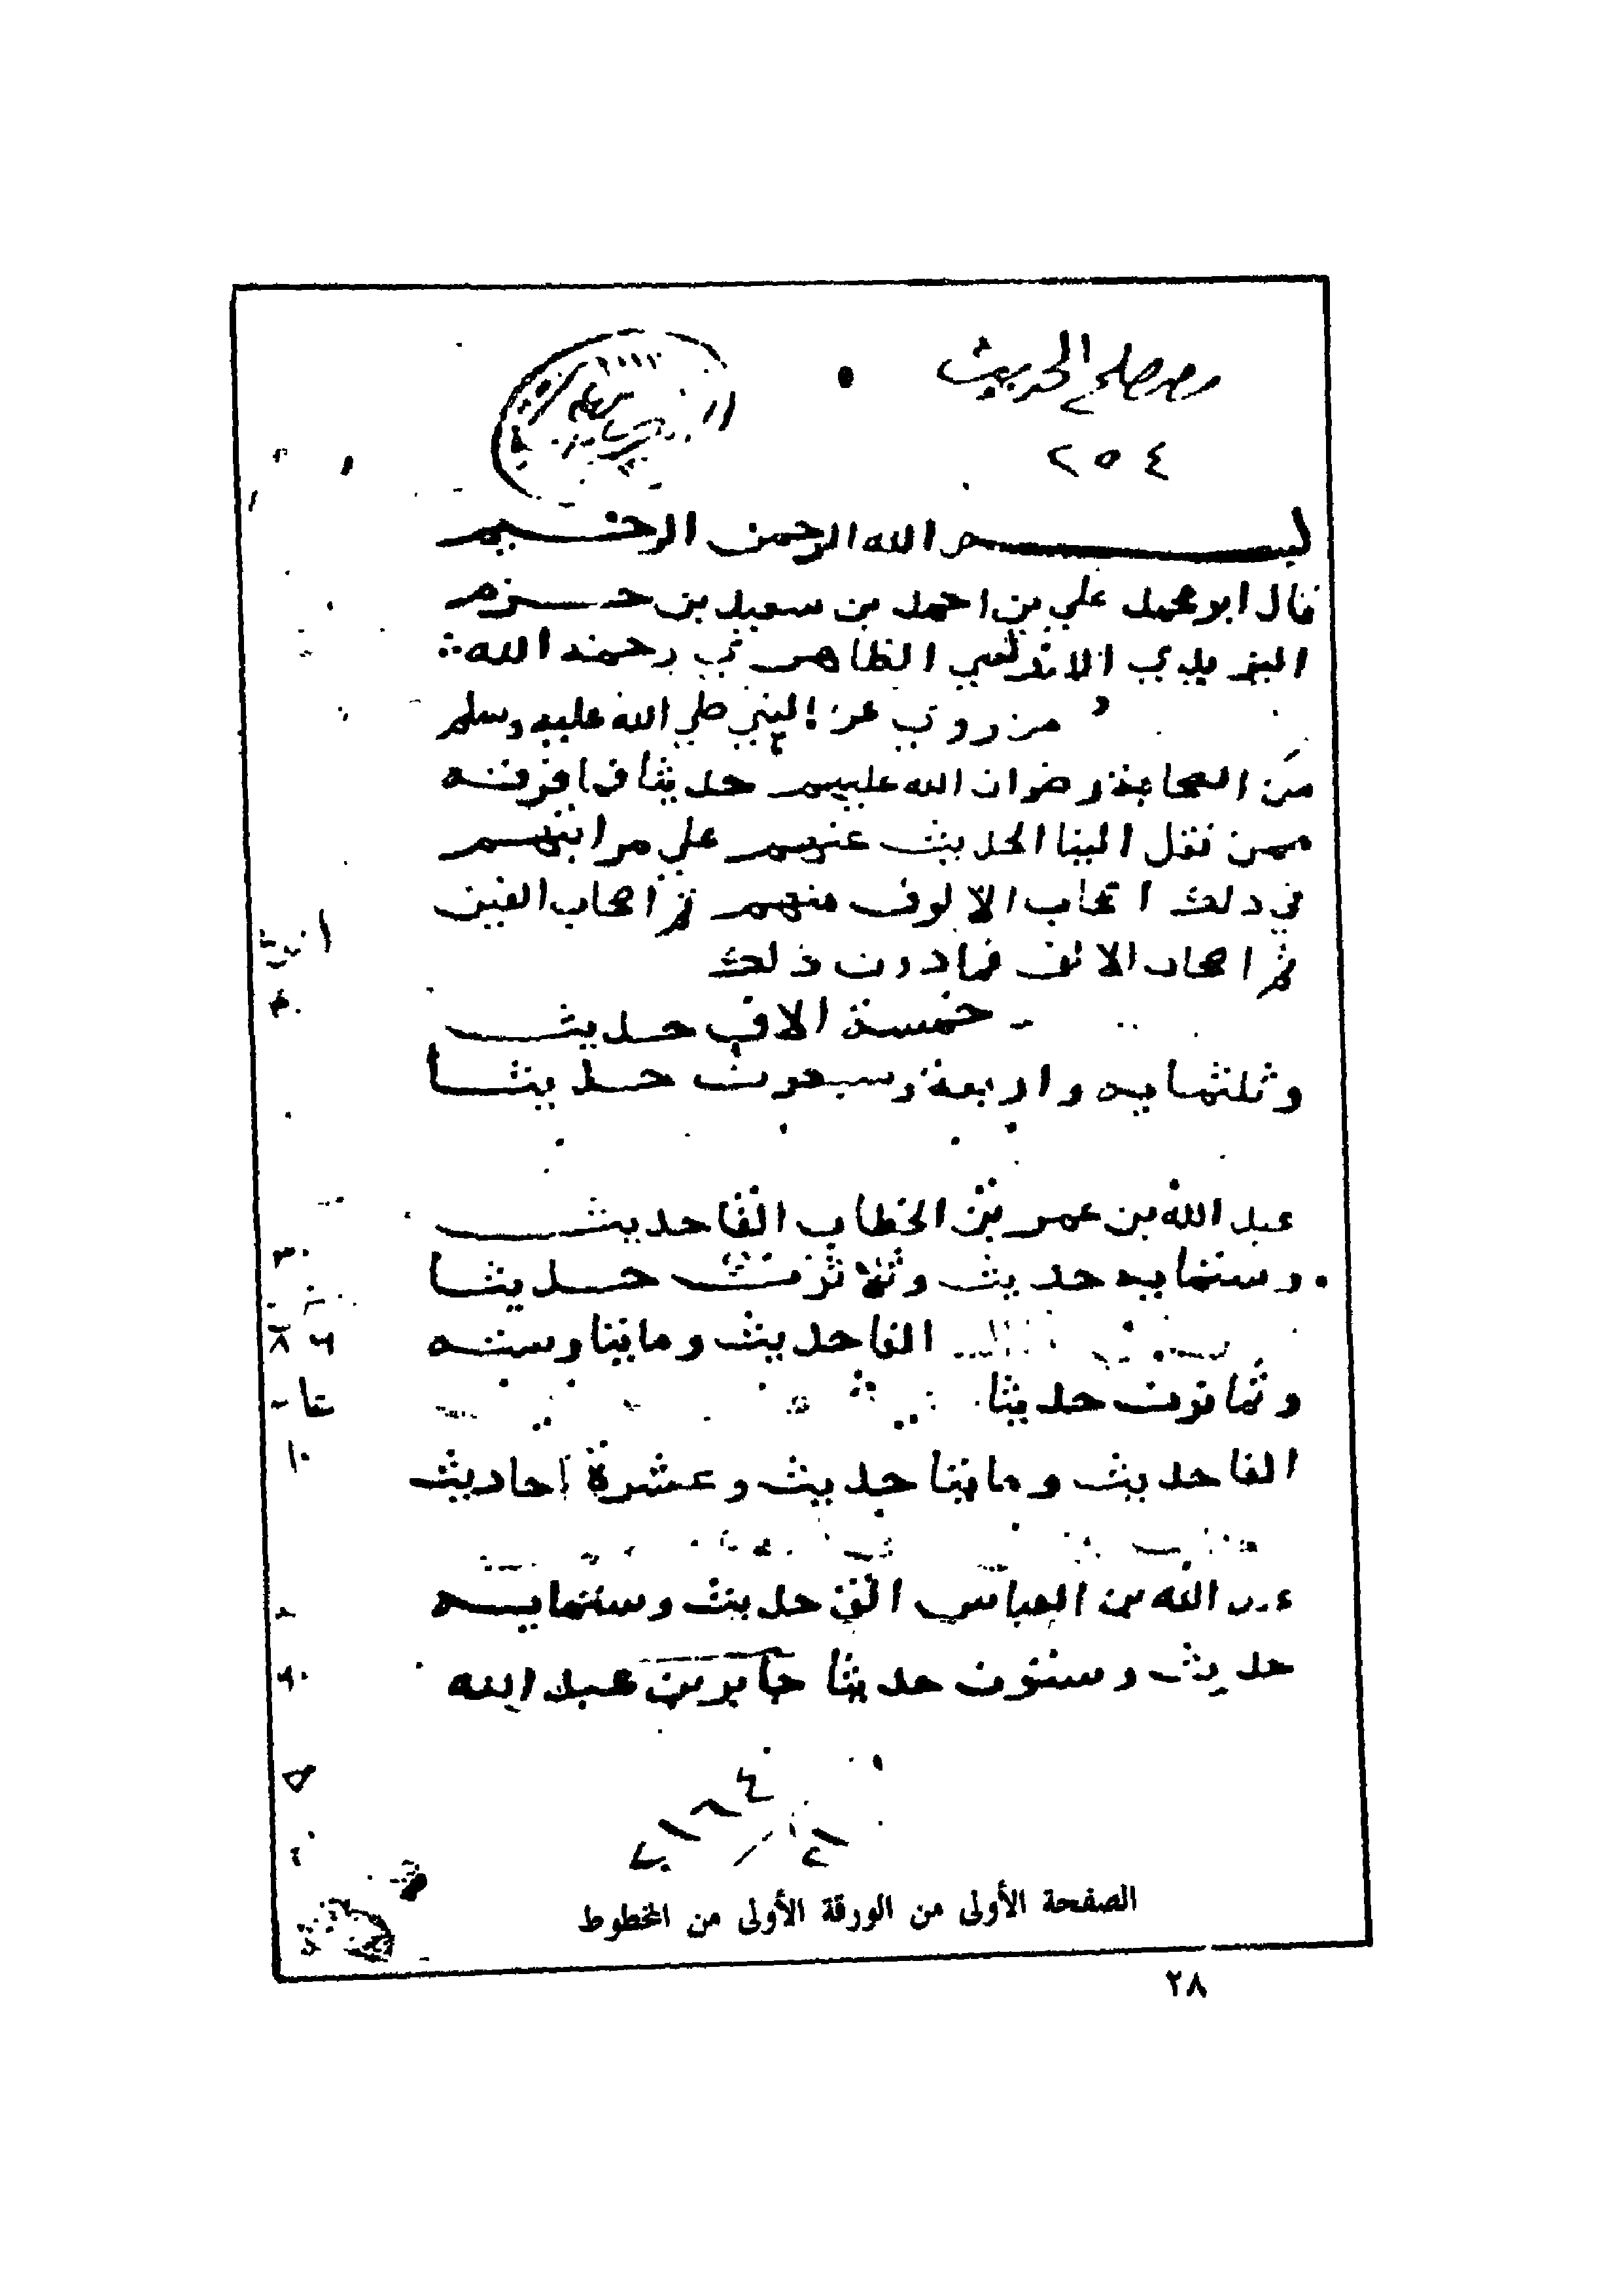 مصطلح الحديث
٢٥٤
بسم الله الرحمن الرحيم
قال ابو محمد علي بن احمد بن سعيد بن حزم
اليزيدي الاندلسي الظاهري رحمه الله
من روي عن النبي صلي الله عليه وسلم
من الصحابة رضوان الله عليهم حديثا فما فوقه
ممن نقل الينا الحديث عنهم علي مراتبهم
في ذلك اصحاب الالوف منهم ثم اصحاب الفين
ثم اصحاب الالف فما دون ذلك
خمسة الاف حديث
وثلثمايه واربعة وسبعون حديثا
عبد الله بن عمر بن الخطاب الفا حديث
وستمايه حديث وثلاثون حديثا
الفا حديث ومايتا وسته
وثمانون حديثا
الفا حديث ومايتا حديث وعشرة احاديث
الله بن العباس الف حديث وستمايه
حديث وستون حديثا جابر بن عبد الله
الصفحة الأولى من الورقة الأولى من المخطوط
٢٨